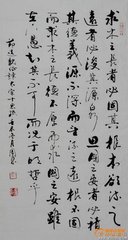 求木之長者必固其根本欲流之
遠者必浚其泉源思國之安者必積
其德義源不深而望流之遠根不固
而求木之長德不厚而思國之安雖
在下愚知其不可而況于明哲乎